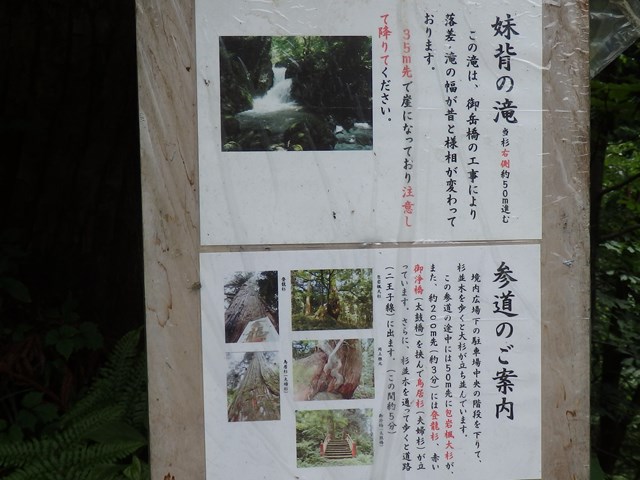 妹背の滝 当杉右側約50m進む
この滝は、御岳橋の工事により
落差・滝の幅が昔と様相が変わって
おります。
35m先で崖になっており注意し
て降りてください。
参道のご案内
境内広場下の駐車場中央の階段を下りて、
杉並木を歩くと大杉が立ち並んでいます。
この参道の途中には50m先に包岩楓大杉が、
また、約200m先(約3分)には登龍杉、赤い
御浄橋(太鼓橋)を挟んで鳥居杉(夫婦杉)が立
っています。さらに、杉並木を通って歩くと道路
(二王子線)に出ます。(この間約5分)
登龍杉
鳥居杉(夫婦杉)